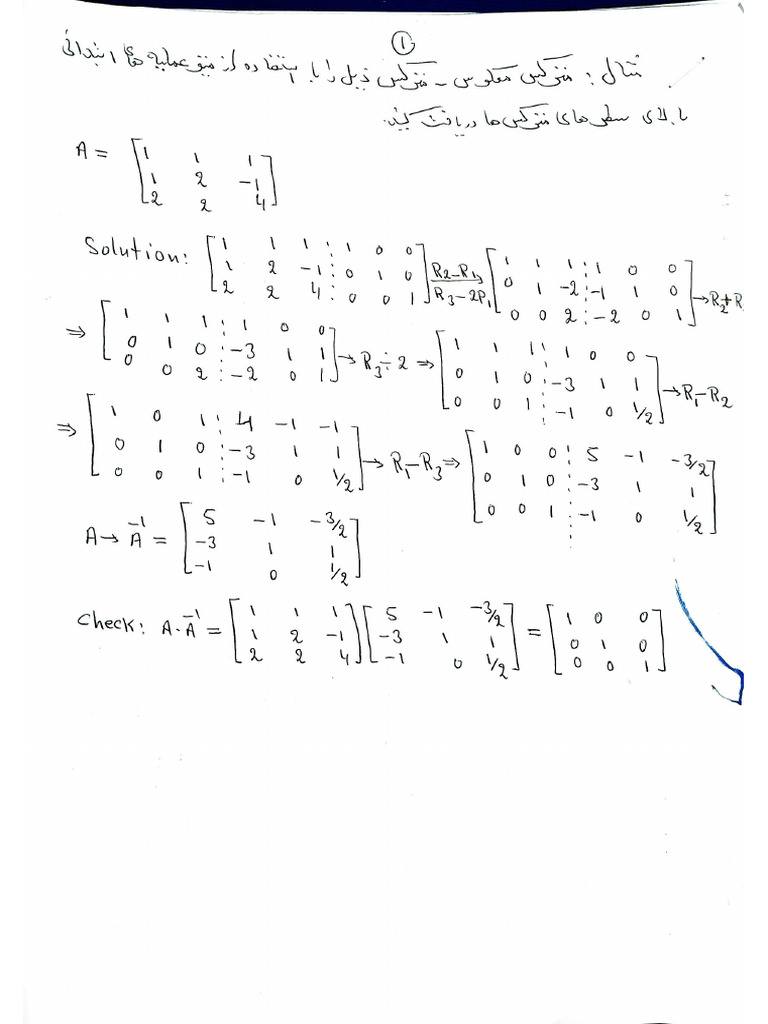 ①
مثال: متریکس معکوس - متریکس ذیل را با استفاده از میتود عملیه های ابتدائی
بالای سطر های متریکس ها دریافت کنید.
A = [1 1 1
1 2 -1
2 2 4]
Solution: [1 1 1 ⋮ 1 0 0
1 2 -1 ⋮ 0 1 0
2 2 4 ⋮ 0 0 1] R2-R1, R3-2R1 → [1 1 1 ⋮ 1 0 0
0 1 -2 ⋮ -1 1 0
0 0 2 ⋮ -2 0 1] → R2+R
⇒ [1 1 1 ⋮ 1 0 0
0 1 0 ⋮ -3 1 1
0 0 2 ⋮ -2 0 1] → R3÷2 ⇒ [1 1 1 ⋮ 1 0 0
0 1 0 ⋮ -3 1 1
0 0 1 ⋮ -1 0 1/2] → R1-R2
⇒ [1 0 1 ⋮ 4 -1 -1
0 1 0 ⋮ -3 1 1
0 0 1 ⋮ -1 0 1/2] → R1-R3 ⇒ [1 0 0 ⋮ 5 -1 -3/2
0 1 0 ⋮ -3 1 1
0 0 1 ⋮ -1 0 1/2]
A → A⁻¹ = [5 -1 -3/2
-3 1 1
-1 0 1/2]
Check: A·A⁻¹ = [1 1 1
1 2 -1
2 2 4] [5 -1 -3/2
-3 1 1
-1 0 1/2] = [1 0 0
0 1 0
0 0 1]